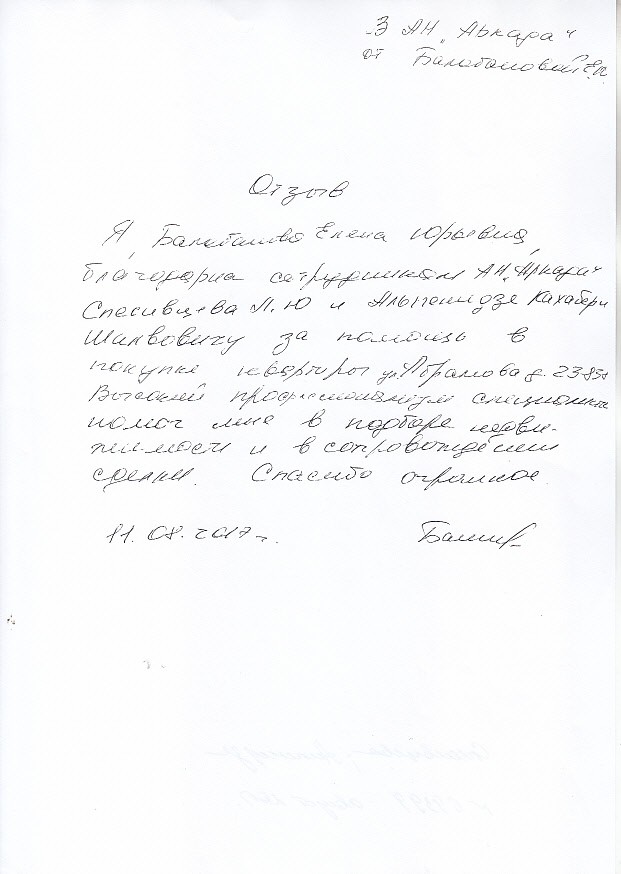 В АН "Аркада"
от Балабановой Е.Ю.
Отзыв
Я, Балабанова Елена Юрьевна,
благодарна сотрудникам АН "Аркада"
Спесивцева Л.Ю и Альпенидзе Кахабери
Шалвовичу за помощь в
покупке квартиры ул. Абрамова д. 23-858
Высокий профессионализм специалистов
помог мне в подборе недви-
жимости и в сопровождении
сделки. Спасибо огромное.
11.08.2017г.